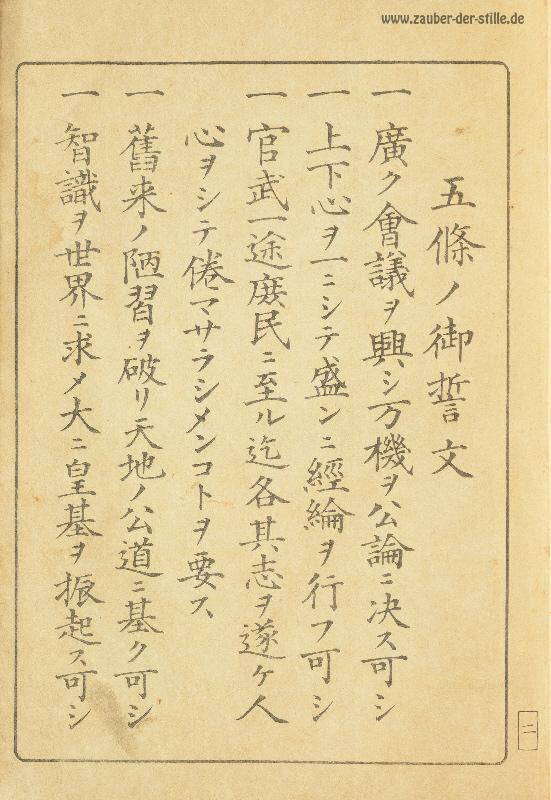 www.zauber-der-stille.de
五條ノ御誓文
一 廣ク會議ヲ興シ万機ヲ公論ニ决ス可シ
一 上下心ヲ一ニシテ盛ンニ經綸ヲ行フ可シ
一 官武一途庶民ニ至ル迄各其志ヲ遂ケ人
心ヲシテ倦マサラシメンコトヲ要ス
一 舊来ノ陋習ヲ破リ天地ノ公道ニ基ク可シ
一 智識ヲ世界ニ求メ大ニ皇基ヲ振起ス可シ
二